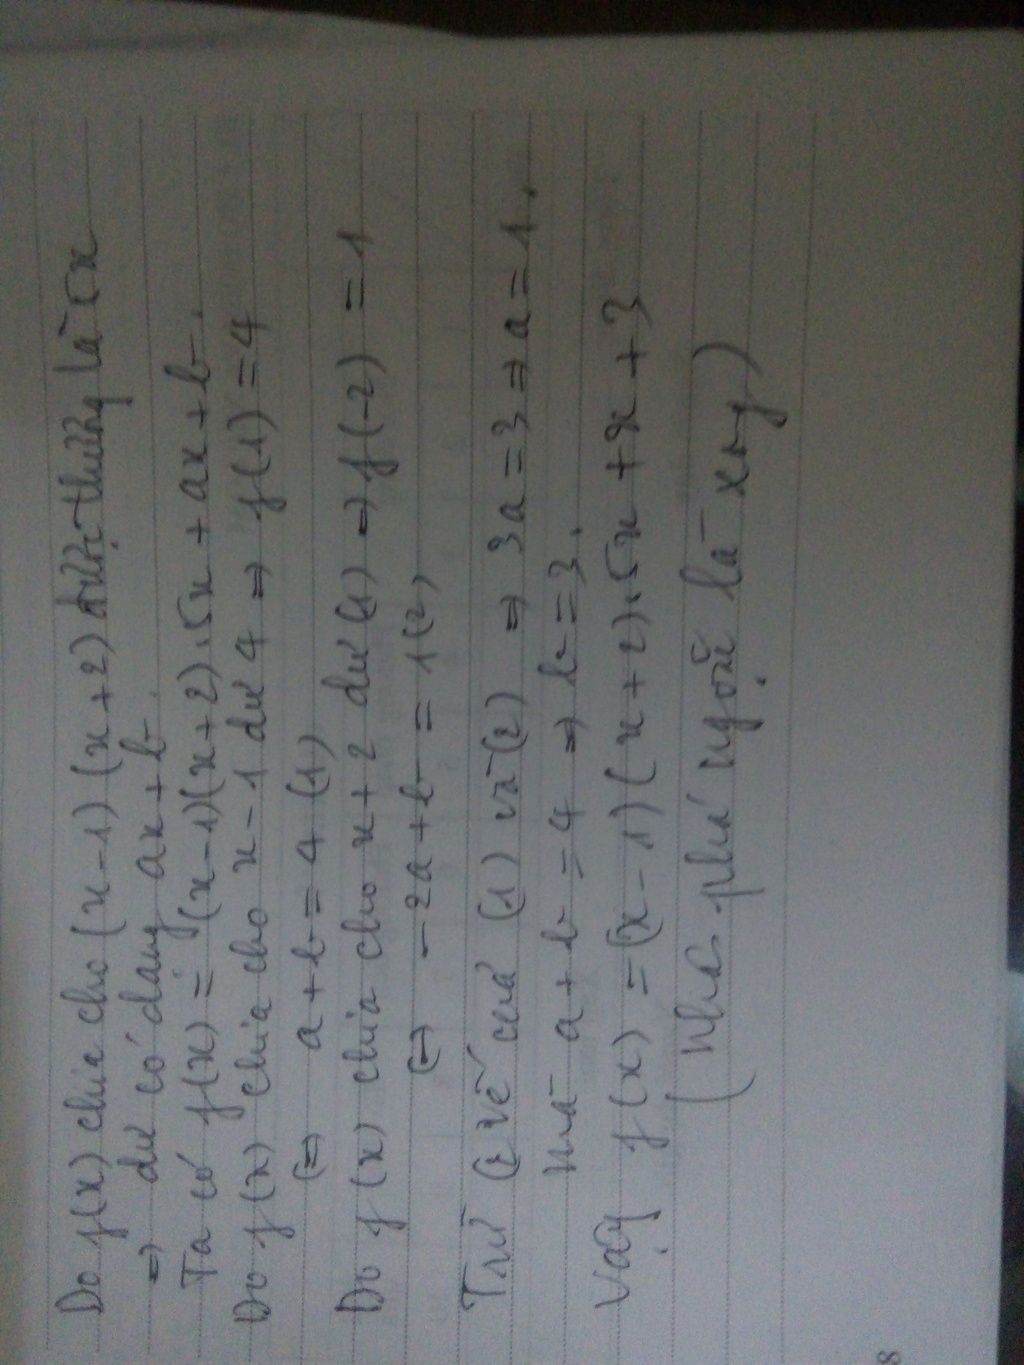 Do f(x) chia cho (x-1)(x+2) được thương là 5x
⇒ dư có dạng ax+b.
Ta có f(x) = (x-1)(x+2).5x + ax + b.
Do f(x) chia cho x-1 dư 4 ⇒ f(1) = 4
(=) a+b = 4 (1)
Do f(x) chia cho x+2 dư (1) ⇒ f(-2) = 1
(=) -2a+b = 1 (2)
Trừ 2 vế của (1) và (2) ⇒ 3a = 3 ⇒ a = 1.
mà a+b = 4 ⇒ b = 3.
Vậy f(x) = (x-1)(x+2).5x + x + 3
(Nhác phá ngoặc là xong)
8